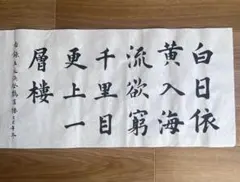 白日依
黄入海
流欲窮
千里目
更上一
層樓